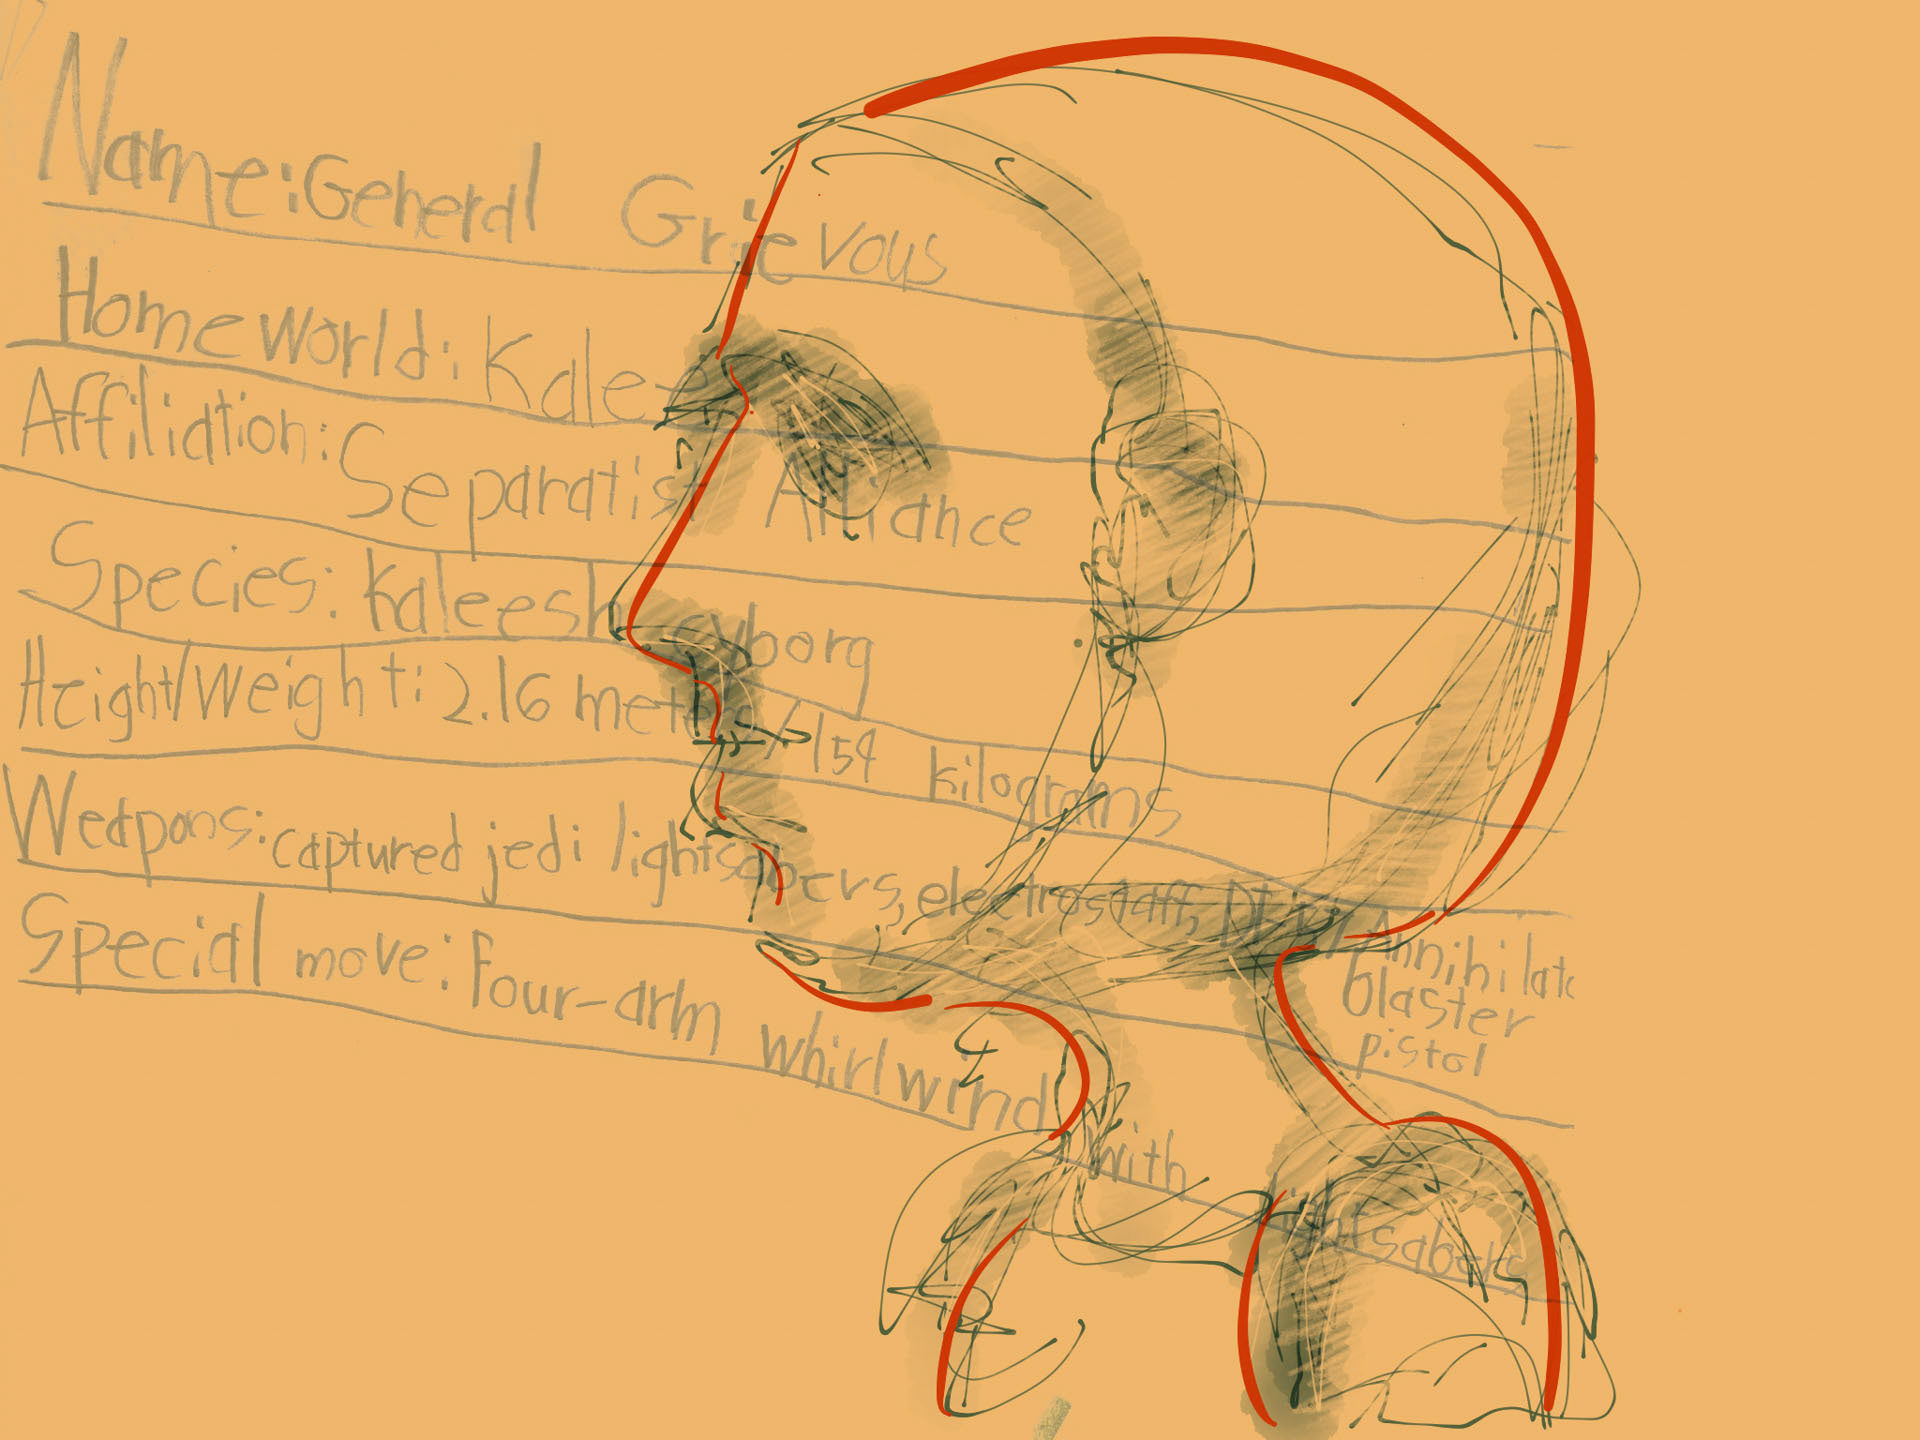 Name: General Grievous
Home World: Kalee
Affiliation: Separatist Alliance
Species: Kaleesh cyborg
Height/Weight: 2.16 meters/154 kilograms
Weapons: captured jedi lightsabers, electrostaff, Annihilato
blaster
pistol
Special move: Four-arm whirlwind with lightsabers